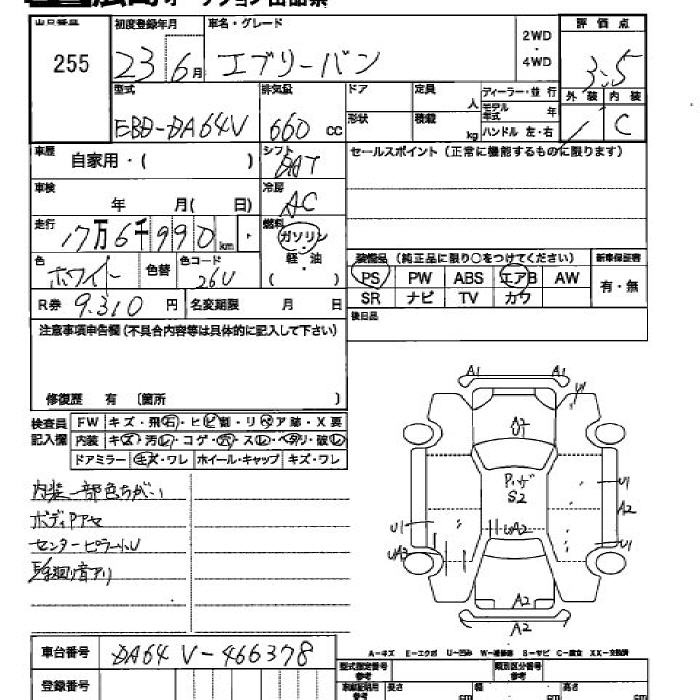 出品番号 初度登録年月 車名・グレード 2WD・4WD 評価点
255 23年 6月 エブリーバン 3.5
型式 排気量 ドア 定員 人 ディーラー・並行 外装 内装
モデル年式 年
EBD-DA64V 660cc 形状 積載 kg ハンドル 左・右 / C
車歴 自家用・( ) シフト DAT セールスポイント (正常に機能するものに限ります)
車検 年 月( 日) 冷房 AC
走行 17万6千990km 燃料 ガソリン
軽・油
( )
色 ホワイト 色替 色コード 26U
装備品 (純正品に限り○をつけてください) 新車保証書
PS PW ABS エアB AW 有・無
SR ナビ TV カワ
R券 9.310円 名変期限 月 日 後日品
注意事項申告欄(不具合内容等は具体的に記入して下さい)
修復歴 有 〔箇所 〕
検査員記入欄 FW キズ・飛石・ヒビ割・リペア跡・X要
内装 キズ・汚レ・コゲ・穴・スレ・ヘタリ・破レ
ドアミラー キズ・ワレ ホイール・キャップ キズ・ワレ
内装一部色ちがい
ボディPアセ
センターピラー小U
廻り音アリ
A1 A1
W
U2
Pハゲ
S2
U1
A2
U1 UA2 U1
UA2
A2
A2
A-キズ E-エクボ U-凹み W-補修跡 S-サビ C-腐食 XX-交換済
車台番号 DA64V-466378
登録番号
型式指定番号 参考 類別区分番号 参考
参考 長さ cm 幅 cm 高さ cm